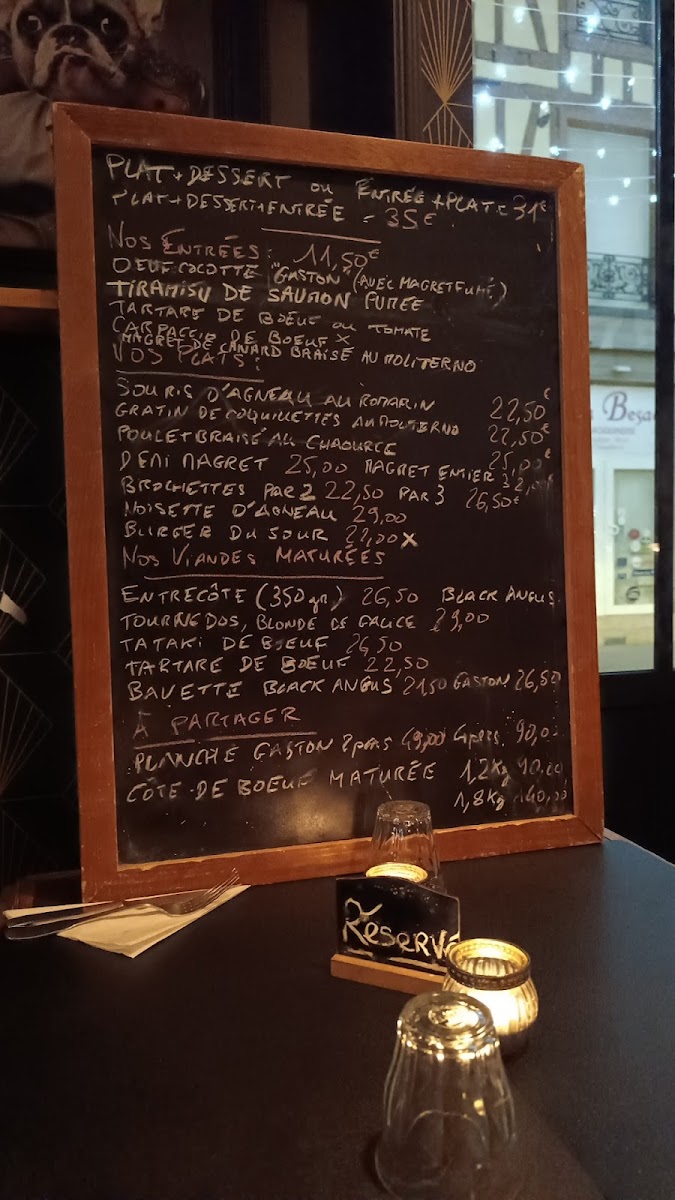 PLAT + DESSERT OU ENTRÉE + PLAT = 31€
PLAT + DESSERT + ENTRÉE = 35€
NOS ENTRÉES : 11,50€
OEUF COCOTTE "GASTON" (AVEC MAGRET FUMÉ)
TIRAMISU DE SAUMON FUMÉE
TARTARE DE BOEUF OU TOMATE
CARPACCIO DE BOEUF X
MAGRET DE CANARD BRAISÉ AU MOLITERNO
NOS PLATS :
SOURIS D'AGNEAU AU ROMARIN 22,50€
GRATIN DE COQUILLETTES AU MOLITERNO 22,50€
POULET BRAISÉ AU CHAOURCE 25,00€
DEMI MAGRET 25,00 MAGRET ENTIER 32,00
BROCHETTES PAR 2 22,50 PAR 3 26,50€
NOISETTE D'AGNEAU 29,00
BURGER DU JOUR 22,00 X
NOS VIANDES MATURÉES
ENTRECÔTE (350 gr.) 26,50 BLACK ANGUS.
TOURNEDOS, BLONDE DE GALICE 29,00
TATAKI DE BOEUF 26,50
TARTARE DE BOEUF 22,50
BAVETTE BLACK ANGUS 21,50 GASTON 26,50
À PARTAGER
PLANCHE GASTON 2 pers 49,00 4 pers. 90,00
CÔTE DE BOEUF MATURÉE 1,2 Kg 90,00
1,8 Kg 140,00
Reservé